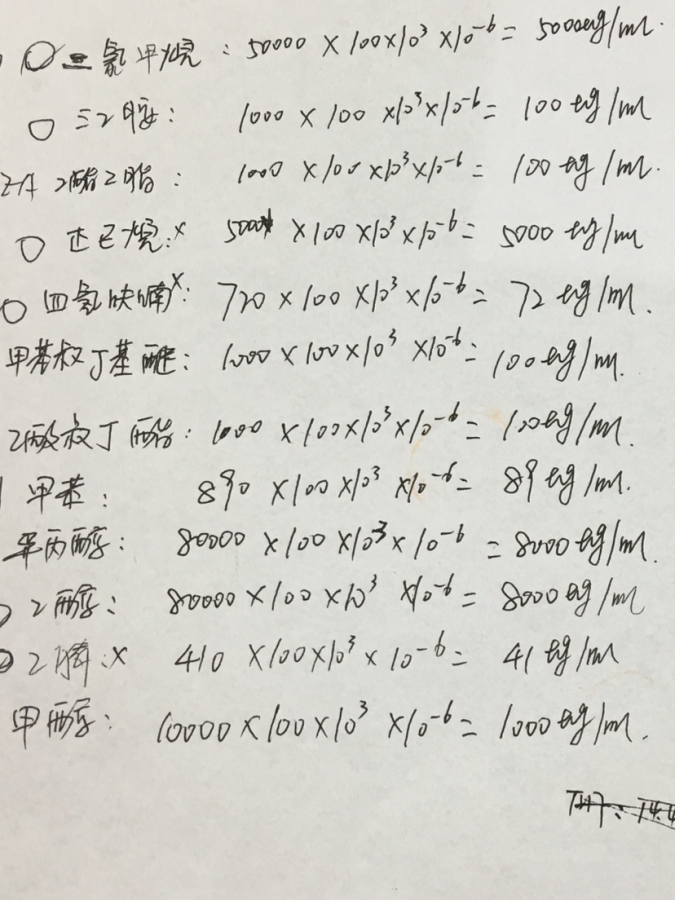 二氯甲烷：50000×100×10³×10⁻⁶= 5000ug/ml.
三乙胺：1000×100×10³×10⁻⁶= 100ug/ml
乙酸乙酯：1000×100×10³×10⁻⁶= 100ug/ml.
正己烷：× 5000×100×10³×10⁻⁶= 5000ug/ml
四氢呋喃×：720×100×10³×10⁻⁶= 72ug/ml.
甲基叔丁基醚：1000×100×10³×10⁻⁶= 100ug/ml.
乙酸叔丁酯：1000×100×10³×10⁻⁶= 100ug/ml.
甲苯：890×100×10³×10⁻⁶= 89ug/ml.
丙醇：80000×100×10³×10⁻⁶=8000ug/ml.
乙醇：80000×100×10³×10⁻⁶= 8000ug/ml
乙腈：× 410×100×10³×10⁻⁶= 41ug/ml
甲醇：10000×100×10³×10⁻⁶= 1000ug/ml.